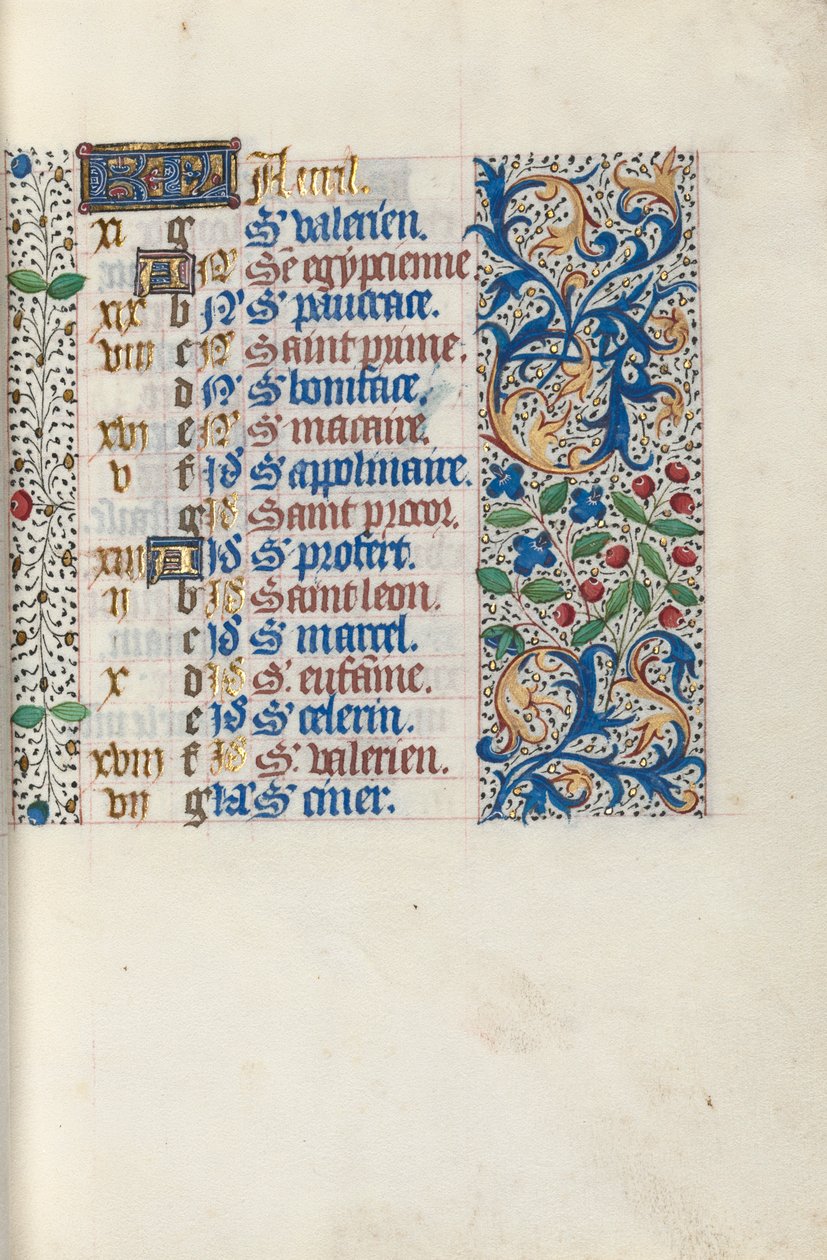 KL Auril.
xi g S' valerien.
A N Sē egypcienne.
xix b N S' pancrace.
viii c N Saint prime.
d N S' boniface.
xvi e N S' macaire.
v f Id S' appolinaire.
g Id Saint procor.
xiii A Id S' profert.
ii b Id Saint leon.
c Id S' marcel.
x d Id S'. eufāme.
e Id S' celerin.
xviii f Id S'. valerien.
vii g kl S' ciner.